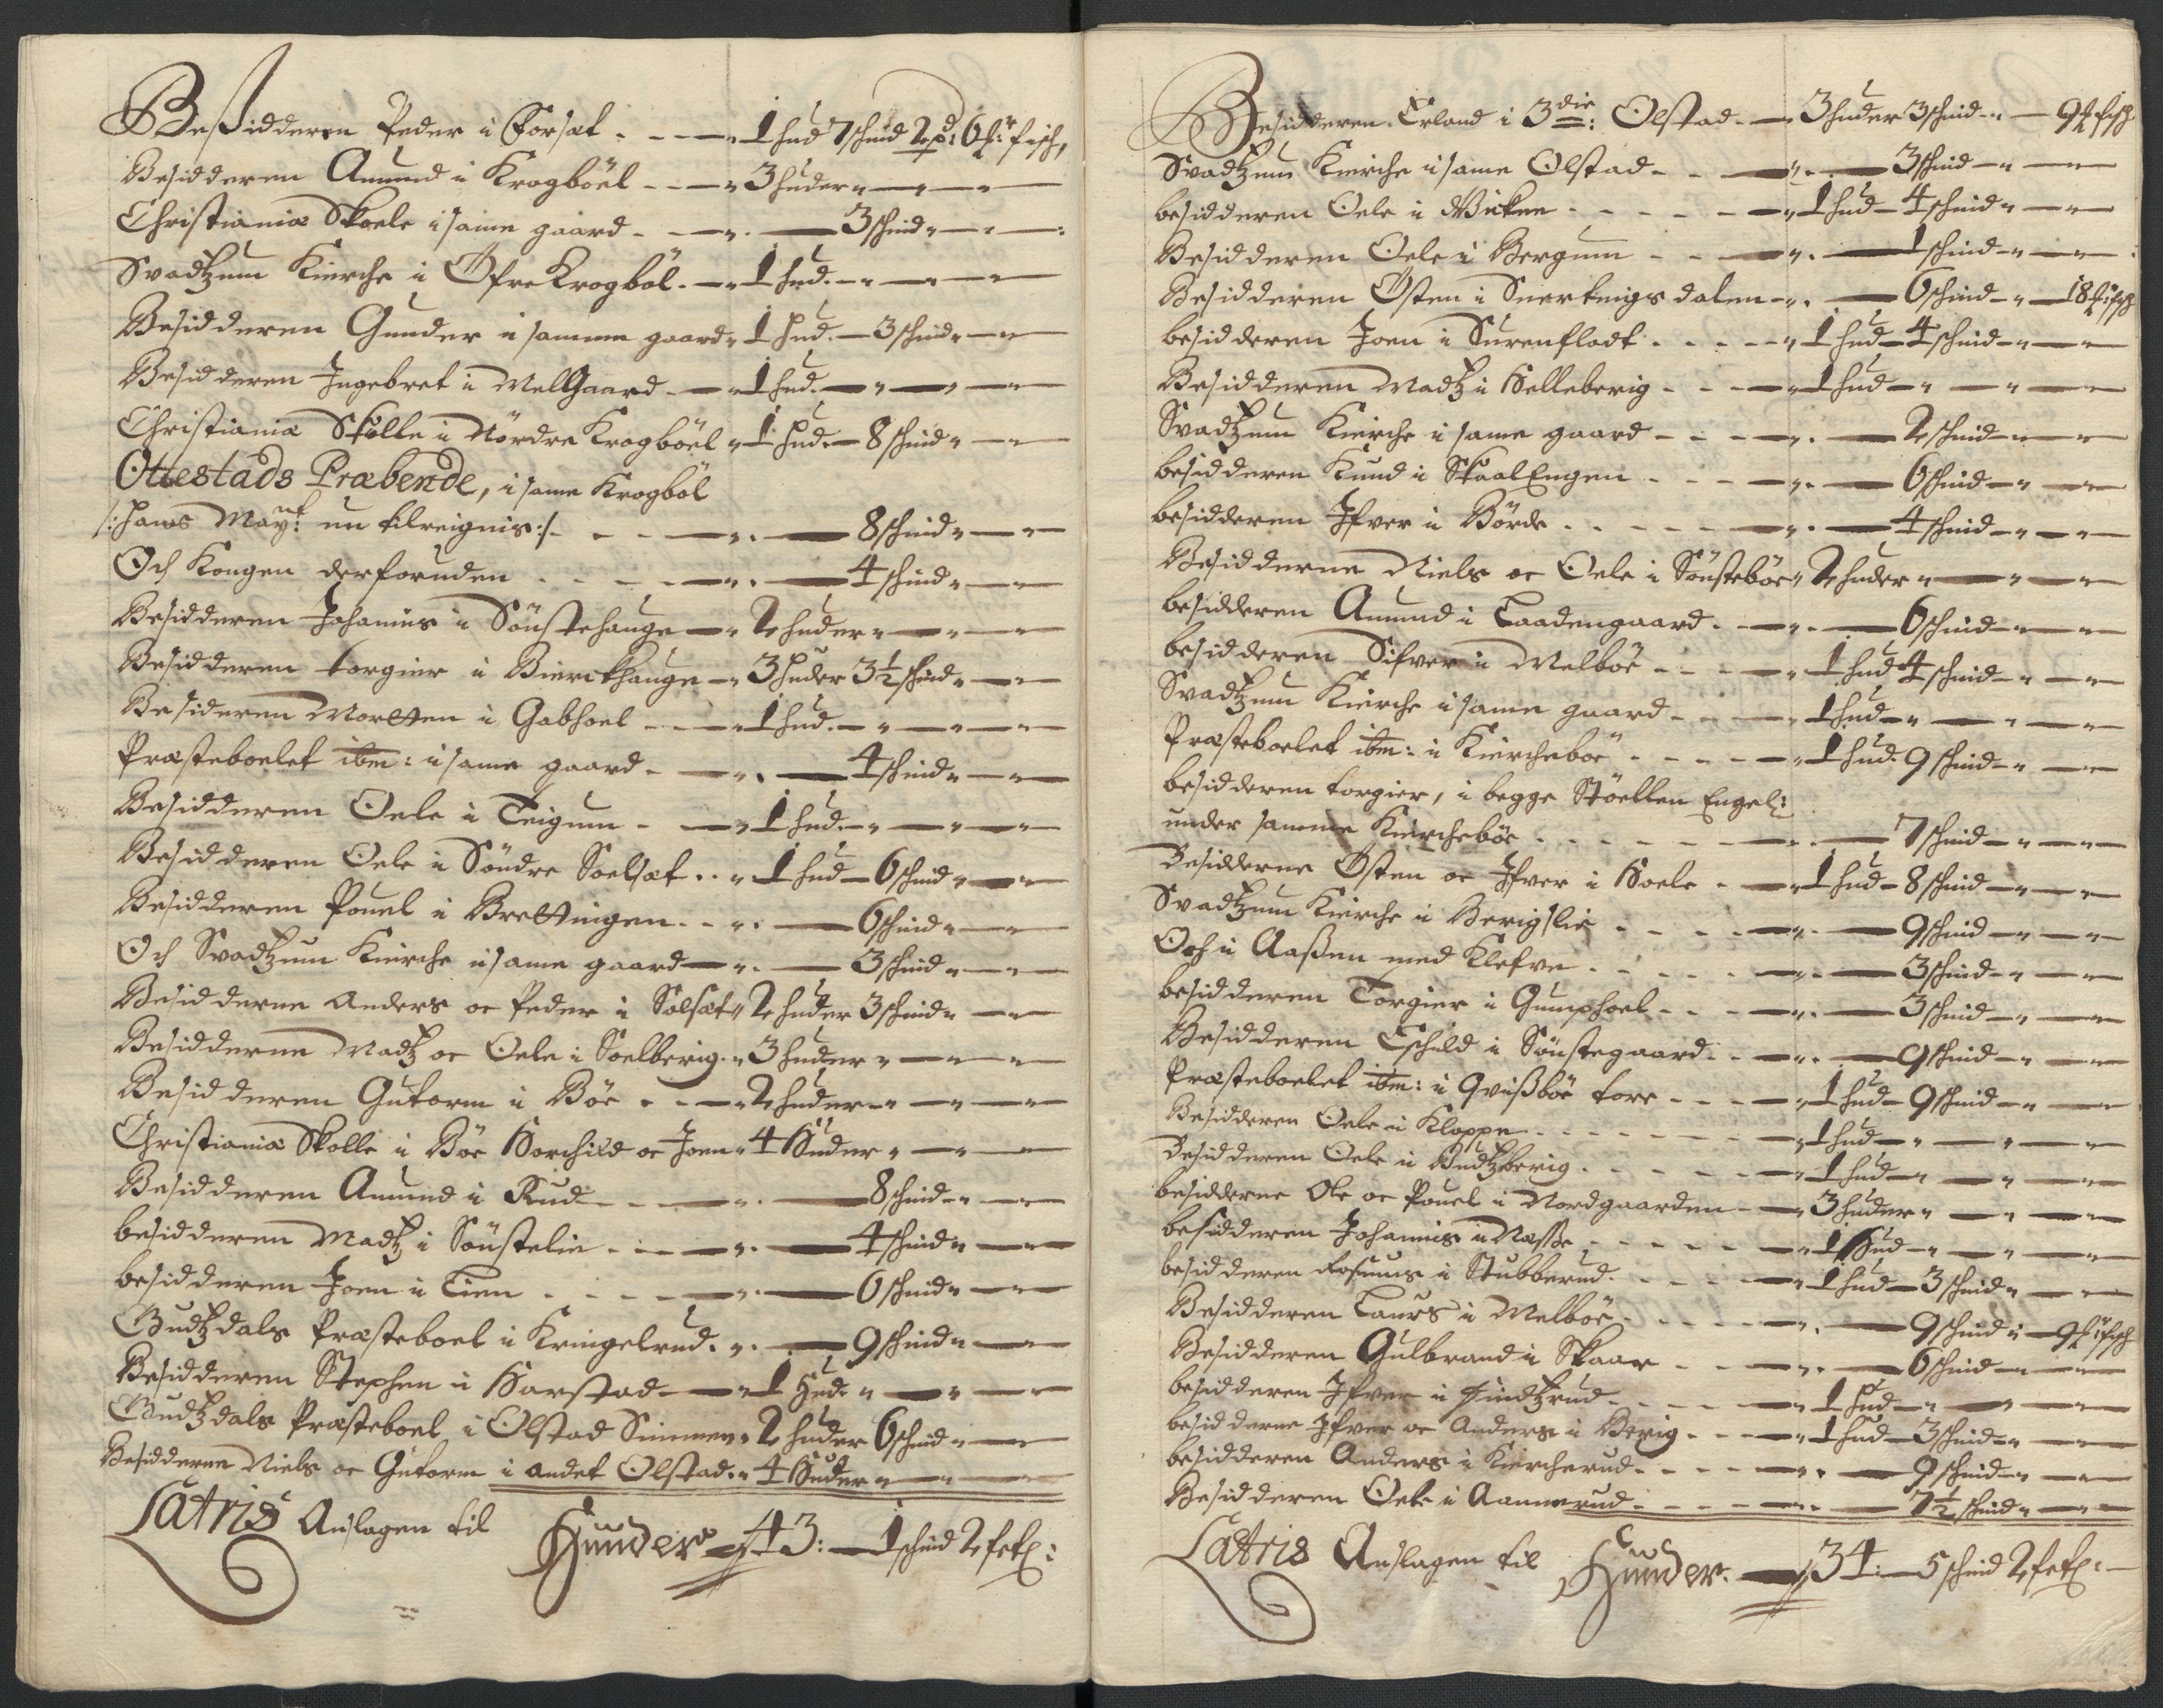 Besidderen Peder i Forsæt - - - 1 hud 7 schind 2 pd: 6 fr: fisch,
Besidderen Amund i Krogböel - - - 3 huder
Christiania Skoele i same gaard - - - 3 schind
Svadtzum Kierche i Öfre Krogböl - 1 hud
Besidderen Gunder i samme gaard - 1 hud - 3 schind
Besidderen Ingebret i Melgaard - 1 hud
Christiania Skolle i Nördre Krogböel - 1 hud - 8 schind
Ottestads Præbende, i same Krogböl
/: hans Mayt: nu tilreignis :/ - - - 8 schind
Och Kongen derforuden - - - 4 schind
Besidderen Johannis i Sönstehauge - 2 huder
Besidderen torgier i Bierckhauge - 3 huder 3½ schind
Besideren Mortten i Gabhoel - - 1 hud
Præsteboelet ibm: i same gaard - - - 4 schind
Besidderen Oele i Teigum - - 1 hud
Besidderen Oele i Söndre Soelsæt - - 1 hud - 6 schind
Besidderen Pouel i Brettingen - - - 6 schind
Och Svadtzum Kierche i same gaard - - 3 schind
Besidderne Anders oc Peder i Solsæt - 2 huder 3 schind
Besidderne Madtz oc Oele i Soelberig - 3 huder
Besidderen Gutorm i Böe - - - 2 huder
Christiania Skolle i Böe Horchild oc Joen - 4 Huder
Besidderen Amund i Rud - - - 8 schind
besidderen Madtz i Sönstelie - - - 4 schind
besidderen Joen i Lien - - - 6 schind
Gudtzdals Præsteboel i Kringelrud - - 9 schind
Besidderen Stephen i Harstad - 1 Hud
Gudtzdals Præsteboel i Olstad Simmen - 2 huder 6 schind
Besidderne Niels oc Gutorm i andet Olstad - 4 Huder
Latris Anslagen til Hunder - 43: - 1 schind 2 setz:
Besidderen Erland i 3die: Olstad - 3 huder 3 schind - 9 fr fisch
Svadtzum Kierche i same Olstad - - 3 schind
besidderen Oele i Wicken - - - 1 hud - 4 schind
Besidderen Oele i Bergum - - - 1 schind
Besidderen Östen i Snerkeigsdalen - - 6 schind - 18 fr: fisch
besidderen Joen i Surenflodt - - - 1 hud - 4 schind
Besidderen Madtz i Helleberig - - - 1 hud
Svadtzum Kierche i same gaard - - - 2 schind
besidderen Knud i SkaalEngen - - - 6 schind
besidderen Ifver i Börde - - - 4 schind
Besidderne Niels oc Oele i Sönsteböe - 2 huder
besidderen Amund i Laadengaard - - 6 schind
besidderen Sifver i Melböe - - - 1 hud 4 schind
Svadtzum Kierche i same gaard - - - 1 hud
Præsteboelet ibm: i Kiercheböe - - - 1 hud 9 schind
besidderen torgier, i begge Stöellen Engel:
under samme Kiercheböe - - - 7 schind
Besidderne Östen oc Ifver i Hoele - - 1 hud - 8 schind
Svadtzum Kierche i Berigslie - - - 9 schind
Och i Aaßen med Klefve - - - 3 schind
besidderen Torgier i Gumphoel - - - 3 schind
Besidderen Eschild i Sönstegaard - - 9 schind
Præsteboelet ibm: i Qvißböe tore - - - 1 hud - 9 schind
Besidderen Oele i Kloppe - - - 1 hud
Besidderen Oele i Budtzberig - - - 1 hud
besidderne Ole oc Pouel i Nordgaarden - 3 huder
besidderen Johannis i Næsse - - - 1 Hud
besidderen Rasmus i Stubberud - - - 1 hud - 3 schind
Besidderen Laurs i Melböe - - - 9 schind - 9 fr: fisch
Besidderen Gulbrand i Skaar - - - 6 schind
besidderen Ifver i Findtzrud - - - 1 hud
besidderne Ifver oc Anders i Berig - - - 1 hud - 3 schind
besidderen Anders i Kiercherud - - - 9 schind
Besidderen Oele i Aannerud - - - 7½ schind
Latris Anslagen til Hunder - 34: - 5 schind 2 setz: